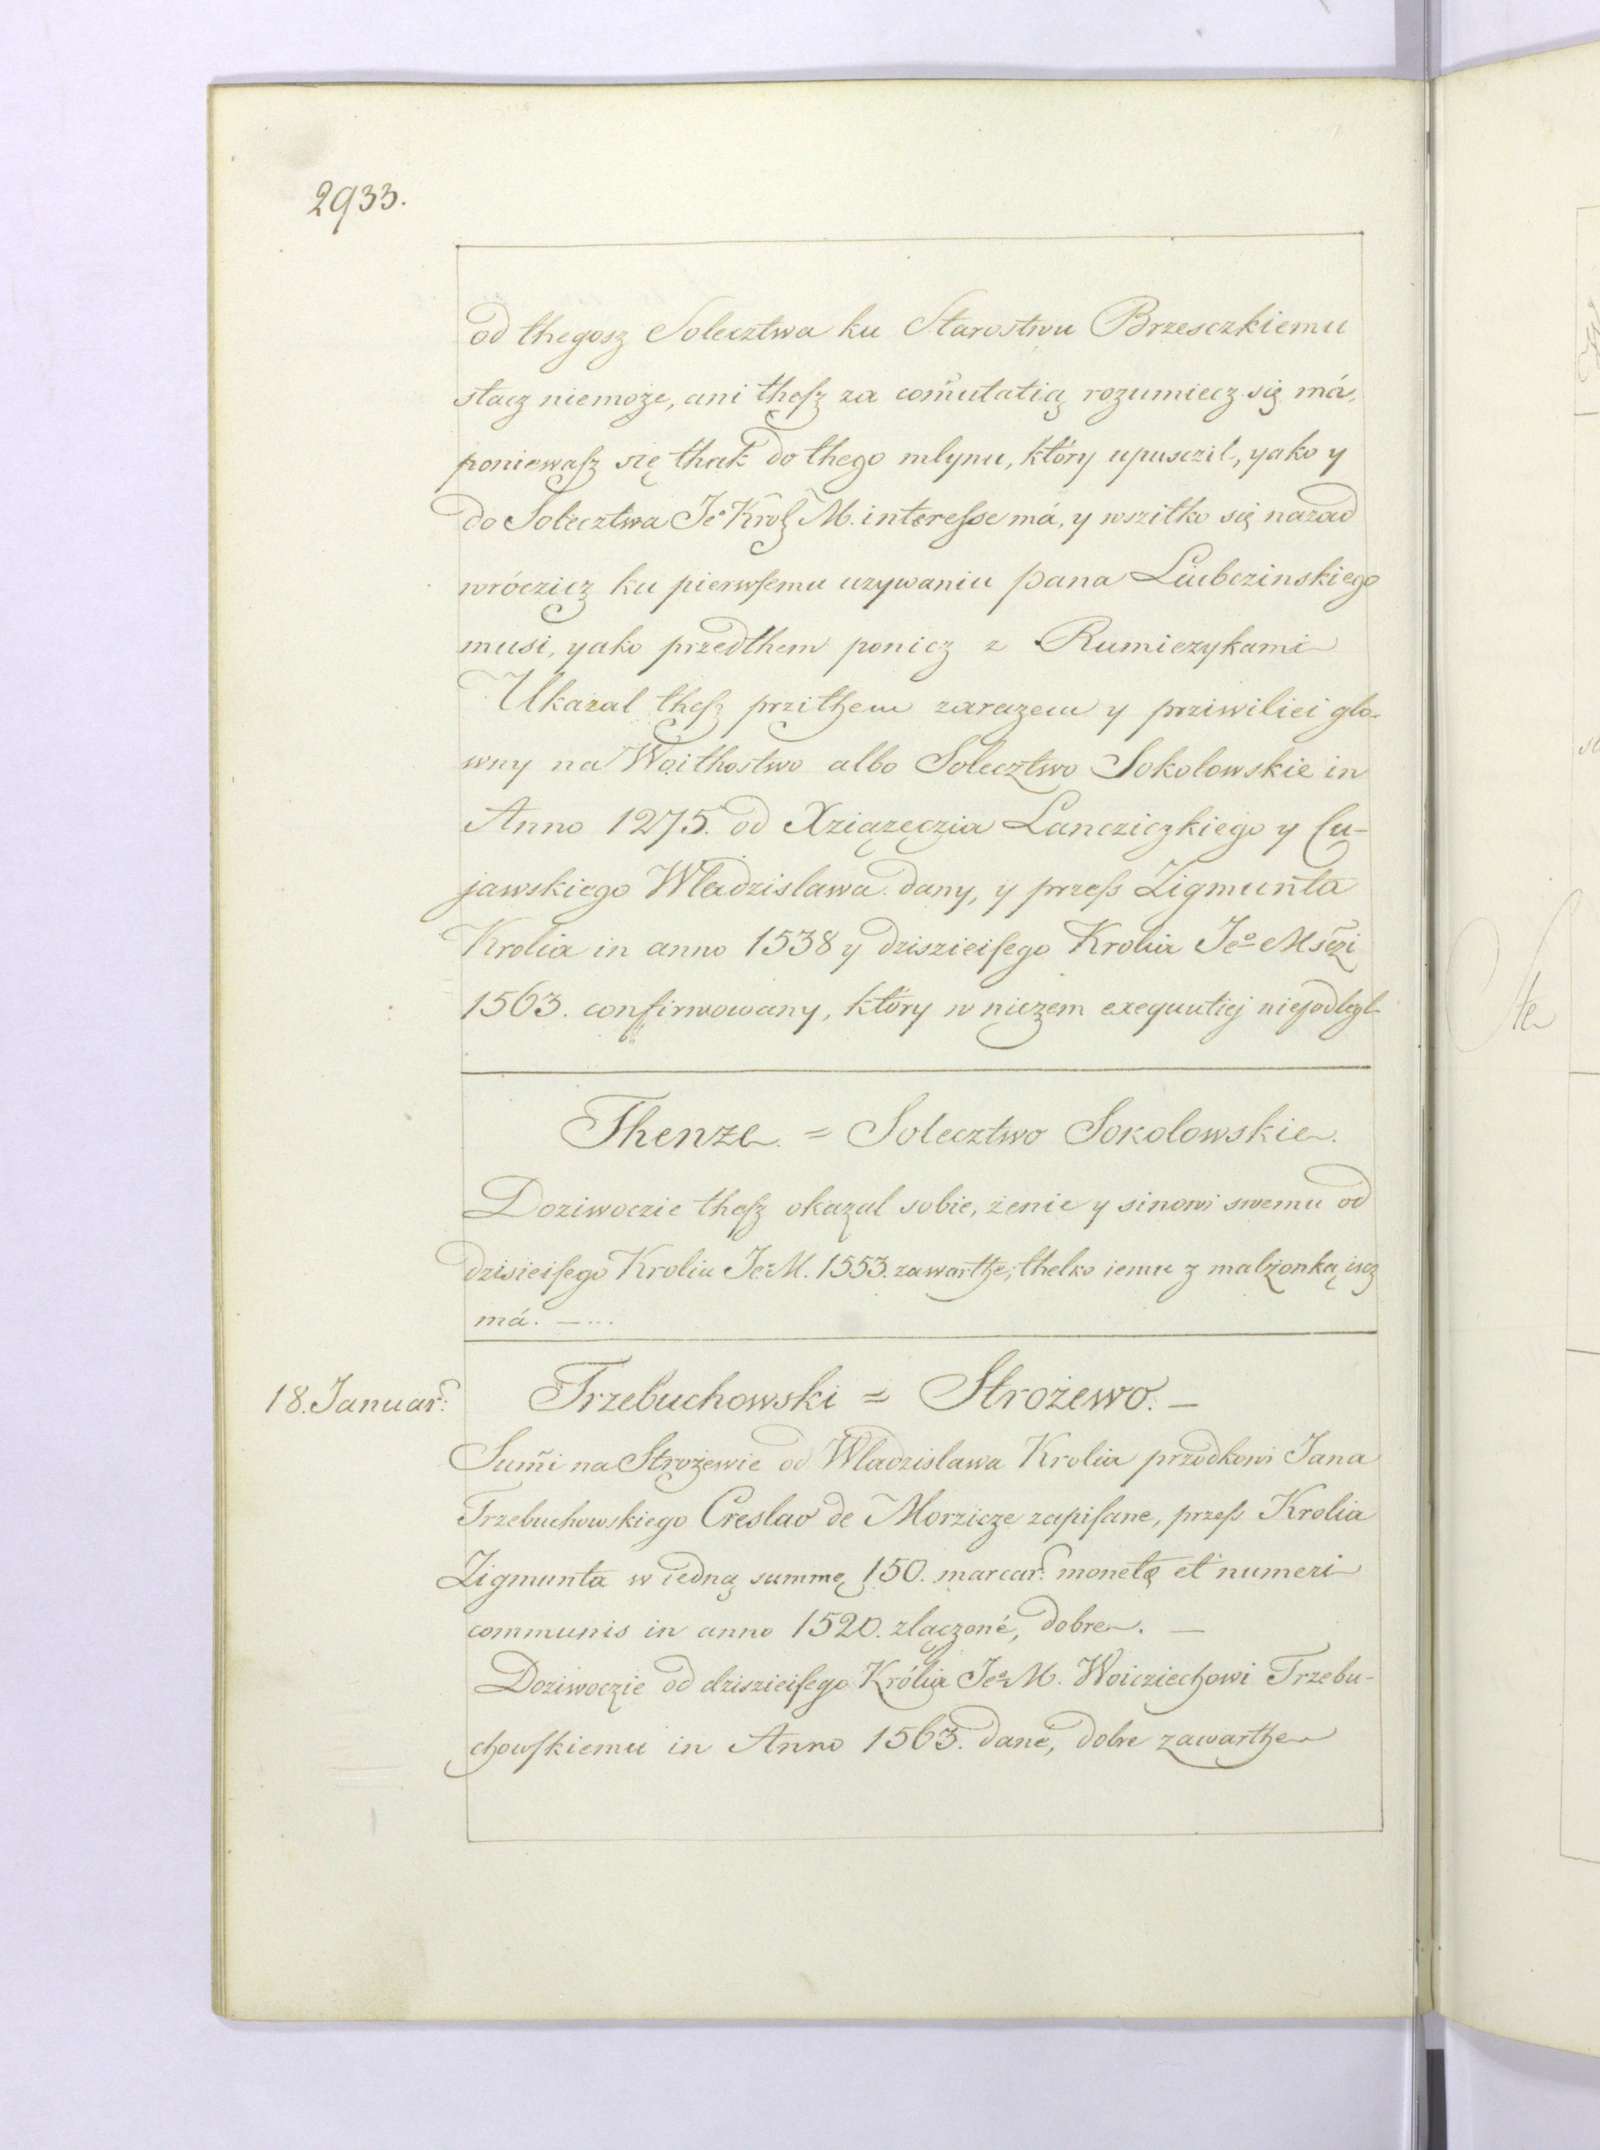 2933.
od thegosz Solecztwa ku Starostwu Brzesczkiemu
stacz niemoże, ani theſz za com̃utatią rozumiecz się má,
poniewaſz się thak do thego mlynu, który upusczil, yako y
do Solecztwa Je° Krol M. intereſse má, y wszitko się nazad
wróczicz ku pierwſemu uzywaniu pana Liubczinskiego
musi, yako przedthem ponicz z Rumiezykami
Ukazal theſz przithem zarazem y priwiliei glo-
wny na Woithostwo albo Solecztwo Sokolowskie in
Anno 1275. od Xziązeczia Lancziczkiego y Cu-
jawskiego Wladzislawa dany, y przeſs Zigmunta
Krolia in anno 1538 y dziszieiſego Krolia Jeo Ms̃czi
1563. confirmowany, który w niczem exequutiej niepodlegl.
Thenze = Solecztwo Sokolowskie.
Doziwoczie theſz okazal sobie, żenie y sinowi swemu od
dzisieiſego Krolia Jeo M. 1553. zawarthe, thelko iemu z malzonką iscz
má. — ...
18. Januar:
Trzebuchowski = Strożewo. —
Sum̃i na Strożewie od Wladzislawa Krolia przodkowi Jana
Trzebuchowskiego Creslao de Morzicze zapiſane, przeſs Krolia
Zigmunta w iedną summę 150. marcar. monetę et numeri
communis in anno 1520. zlączoné, dobre. —
Doziwoczie od dziszieiſego Królia Jeo M. Woicziechowi Trzebu-
chowſkiemu in Anno 1563. dané, dobre zawarthe